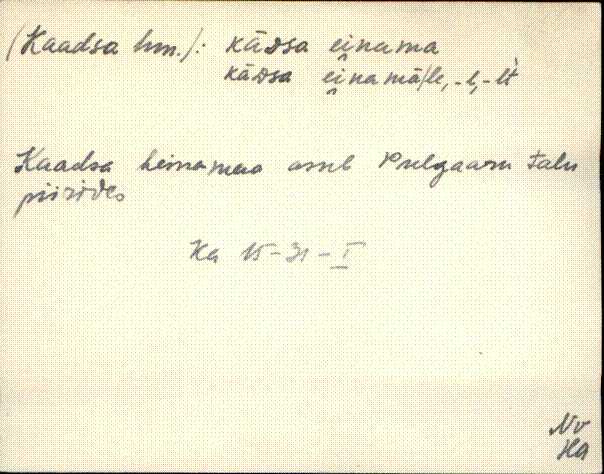 (Kaadsa hm.): kādsa e̯inama
kādsa e̯inamā/le, -l, -lt
Kaadsa heinamaa asub Pulgaaru talu
piirides
Ka 15-31-I
Nv
HA